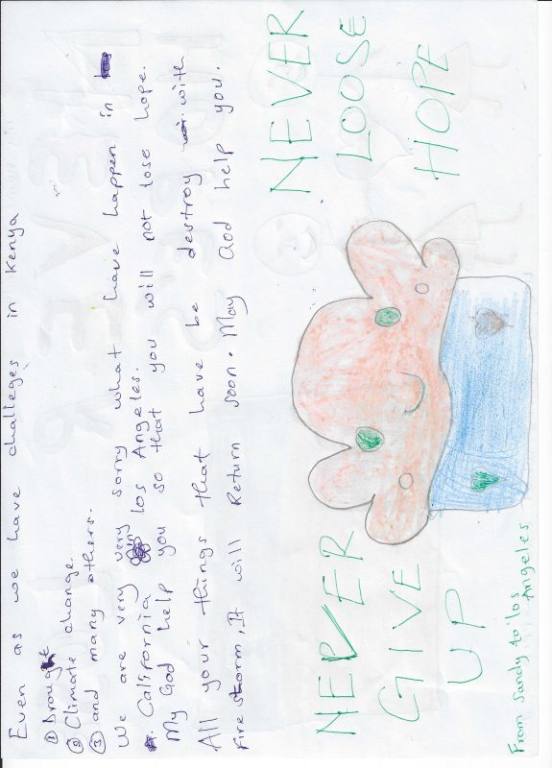 Even as we have challeges in Kenya
① Drought
② Climate change.
③ and many others.
We are very very sorry what have happen in
California Los Angeles.
My God help you so that you will not lose hope.
All your things that have be destroy with
Fire storm, It will Return soon. May God help you.
NEVER
GIVE
UP
NEVER
LOOSE
HOPE
From Sandy to: Los
Angeles